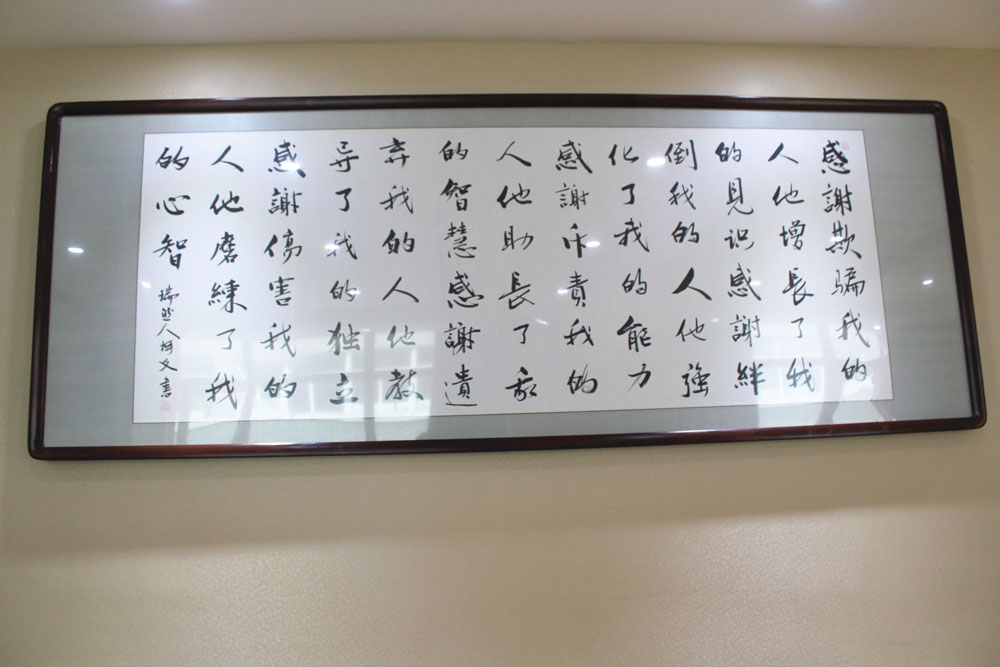 感謝欺骗我的
人他增長了我
的見识感謝絆
倒我的人他強
化了我的能力
感謝斥責我的
人他助長了我
的智慧感謝遺
弃我的人他教
导了我的独立
感謝傷害我的
人他磨練了我
的心智